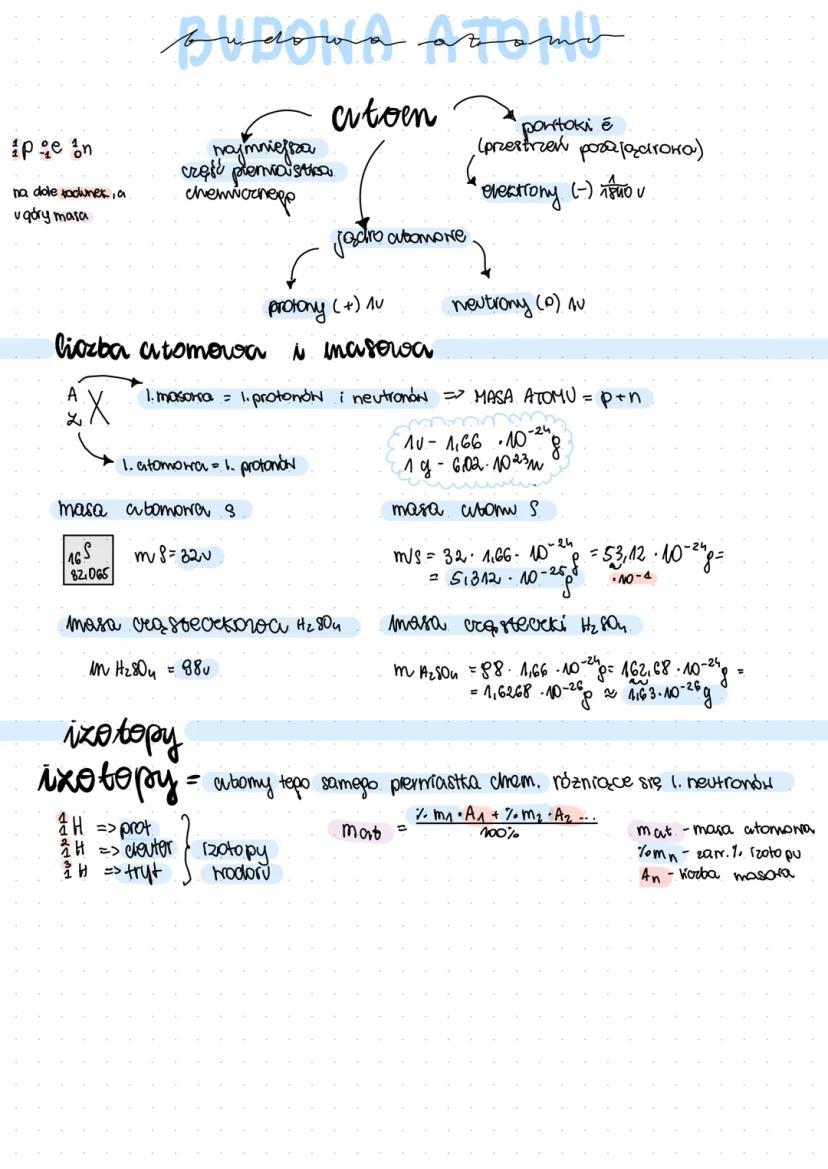 BUDOWA ATOMU
budowa atomu
atom
najmniejsza
część pierwiastka
chemicznego
powłoki ē
(przestrzeń pozajądrowa)
elektrony (-) 1/1840 u
¹₁p ⁰₋₁e ¹₀n
na dole ładunek, a
u góry masa
jądro atomowe
protony (+) 1u
neutrony (0) 1u
liczba atomowa i masowa
A
Z X
l. masowa = l. protonów i neutronów => MASA ATOMU = p+n
l. atomowa = l. protonów
1u - 1,66 · 10⁻²⁴g
1 g - 6,02 · 10²³u
masa atomowa S
masa atomu S
16 S
32,065
m S = 32u
m S = 32 · 1,66 · 10⁻²⁴g = 53,12 · 10⁻²⁴g =
= 5,312 · 10⁻²⁵g
·10⁻¹
masa cząsteczkowa H₂SO₄
masa cząsteczki H₂SO₄
m H₂SO₄ = 98u
m H₂SO₄ = 98 · 1,66 · 10⁻²⁴g = 162,68 · 10⁻²⁴g =
= 1,6268 · 10⁻²⁶g ≈ 1,63 · 10⁻²⁶g
izotopy
izotopy = atomy tego samego pierwiastka chem. różniące się l. neutronów
¹₁H => prot
²₁H => deuter
³₁H => tryt
izotopy
wodoru
mat = % m₁ · A₁ + % m₂ · A₂ ...
100%
mat - masa atomowa
%mn - zaw. % izotopu
An - liczba masowa